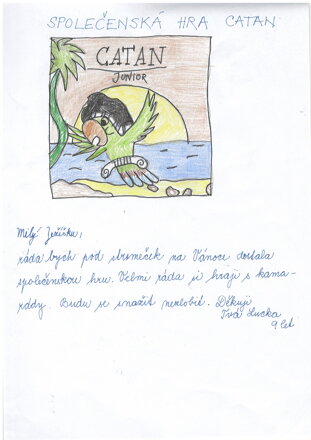 SPOLEČENSKÁ HRA CATAN
CATAN
JUNIOR
Milý Ježíšku,
ráda bych pod stromeček na Vánoce dostala
společenskou hru. Velmi ráda ji hraji s kama-
rády. Budu se snažit nezlobit. Děkuji
Tvá Lucka
9 let